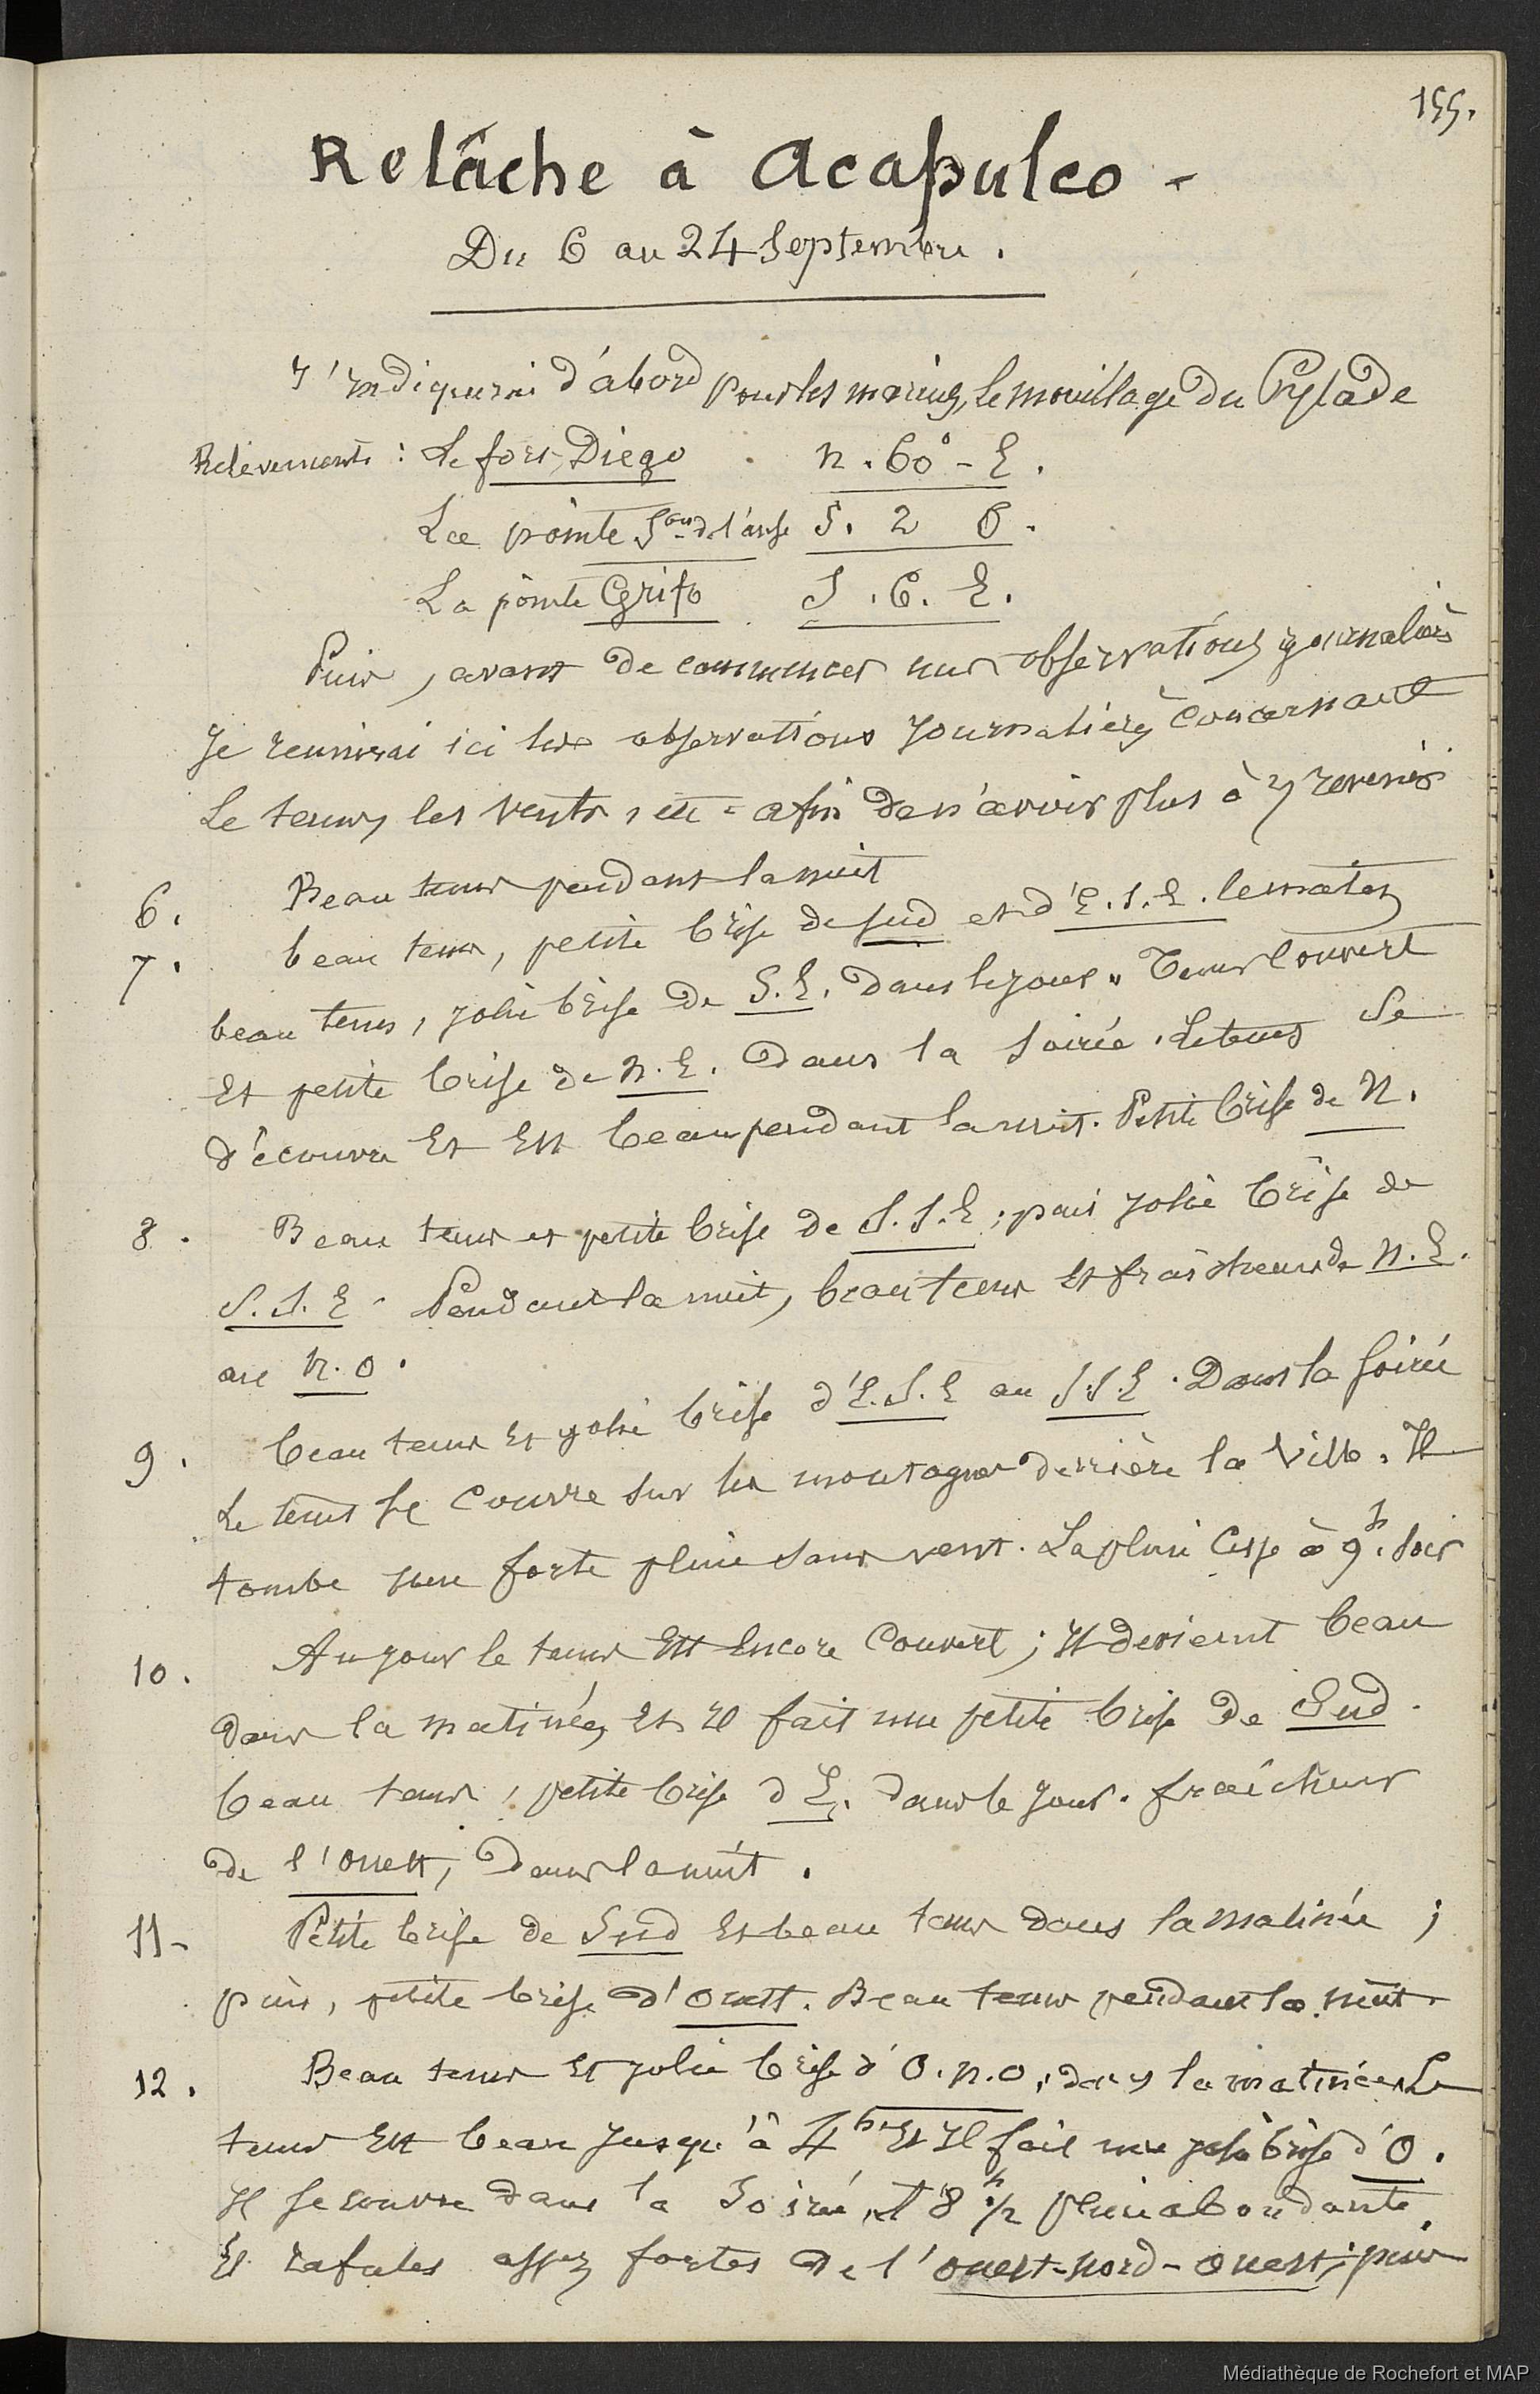 155.
Relâche à Acapulco -
Du 6 au 24 Septembre.
J'indiquerai d'abord pour les marins, le mouillage du Pylade
Relèvements : Le fort Diego . N. 60° - E.
La pointe S. de l'anse S. 2 O.
La pointe Grifo S. 6. E.
Puis, avant de commencer mes observations journalières
Je reunirai ici les observations journalières concernant
Le tems, les vents, etc - afin de n'avoir plus à y revenir.
6. Beau tems pendant la nuit
7. beau tems, petite brise de Sud et d'E.S.E. le matin
beau tems, jolie brise de S.E. dans le jour. Tems couvert
Et petite brise de N.E. Dans la soirée. Le tems Se
découvre Et Est beau pendant la nuit. Petite brise de N.
8. Beau tems et petite brise de S.S.E ; puis jolie brise de
S.S.E - Pendant la nuit, beau tems Et fraîcheur de N.E.
au N.O.
9. beau tems Et jolie brise d'E.S.E au S.S.E. Dans la soirée
Le tems se couvre sur les montagnes derrière la ville. Il
tombe une forte pluie sans vent. La pluie cesse à 9h. soir
10. Au jour le tems Est Encore Couvert ; Il devient beau
dans la matinée, Et Il fait une petite brise de Sud.
beau tems, petite brise d E. dans le jour. fraîcheur
de l'Ouest, Dans la nuit.
11- Petite brise de Sud Et beau tems dans la matinée ;
puis, petite brise d'Ouest. Beau tems pendant la nuit.
12. Beau tems Et jolie brise d'O.N.O, dans la matinée. Le
tems Est beau jusqu'à 4h. Et Il fait une jolie brise d'O.
Il se couvre dans la Soirée, à 8h 1/2 pluie abondante,
Et rafales assez fortes de l'ouest-nord-ouest ; puis
Médiathèque de Rochefort et MAP